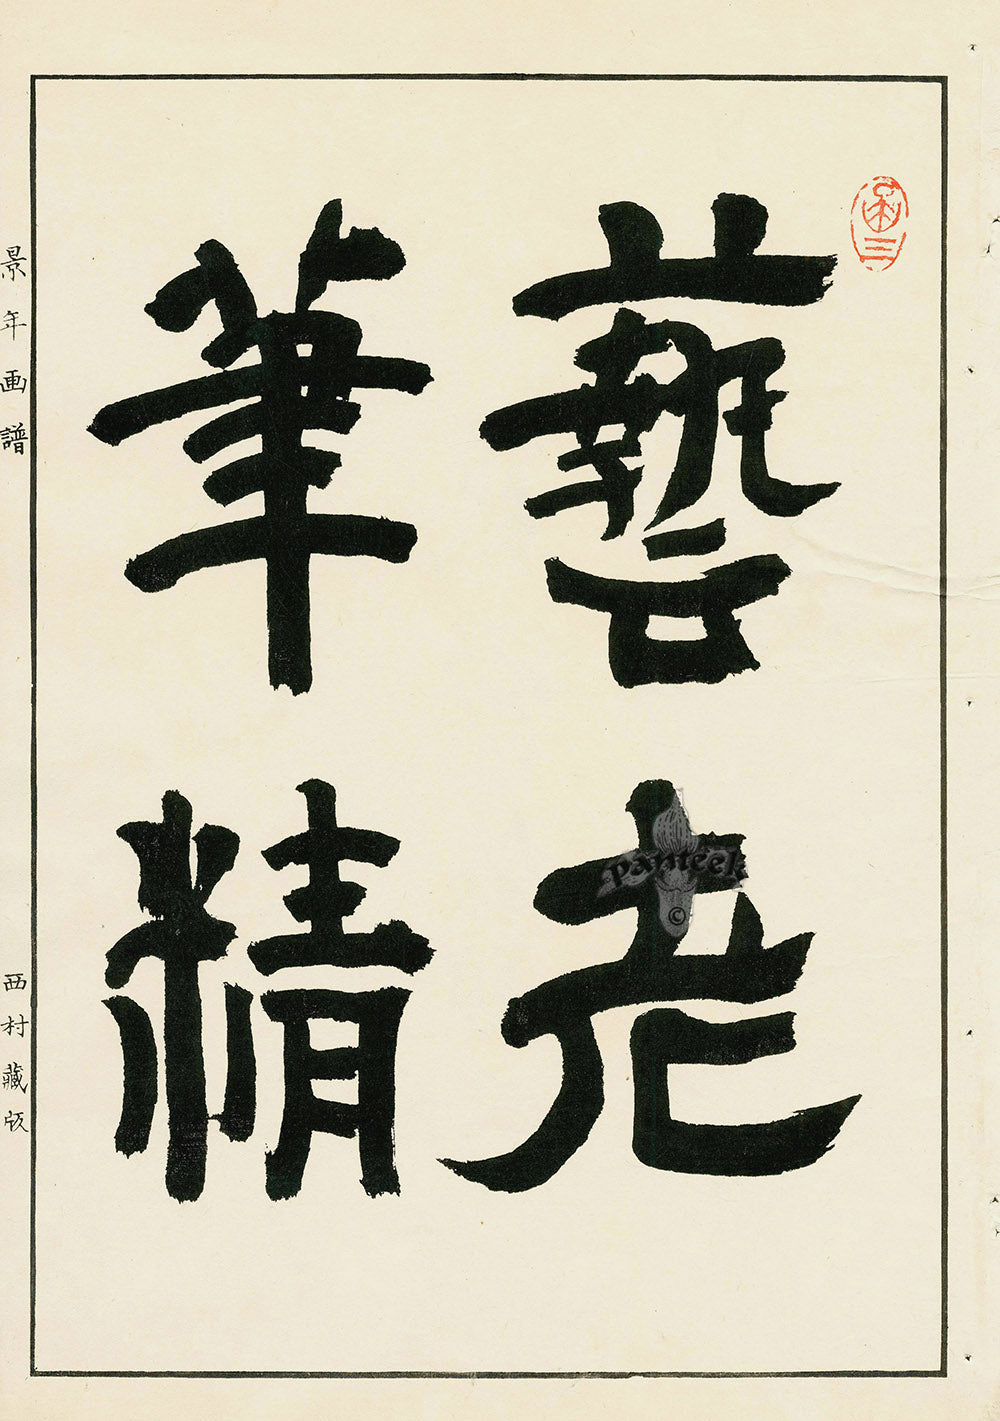 藝老
筆精
景年画譜
西村藏版
panteek
©